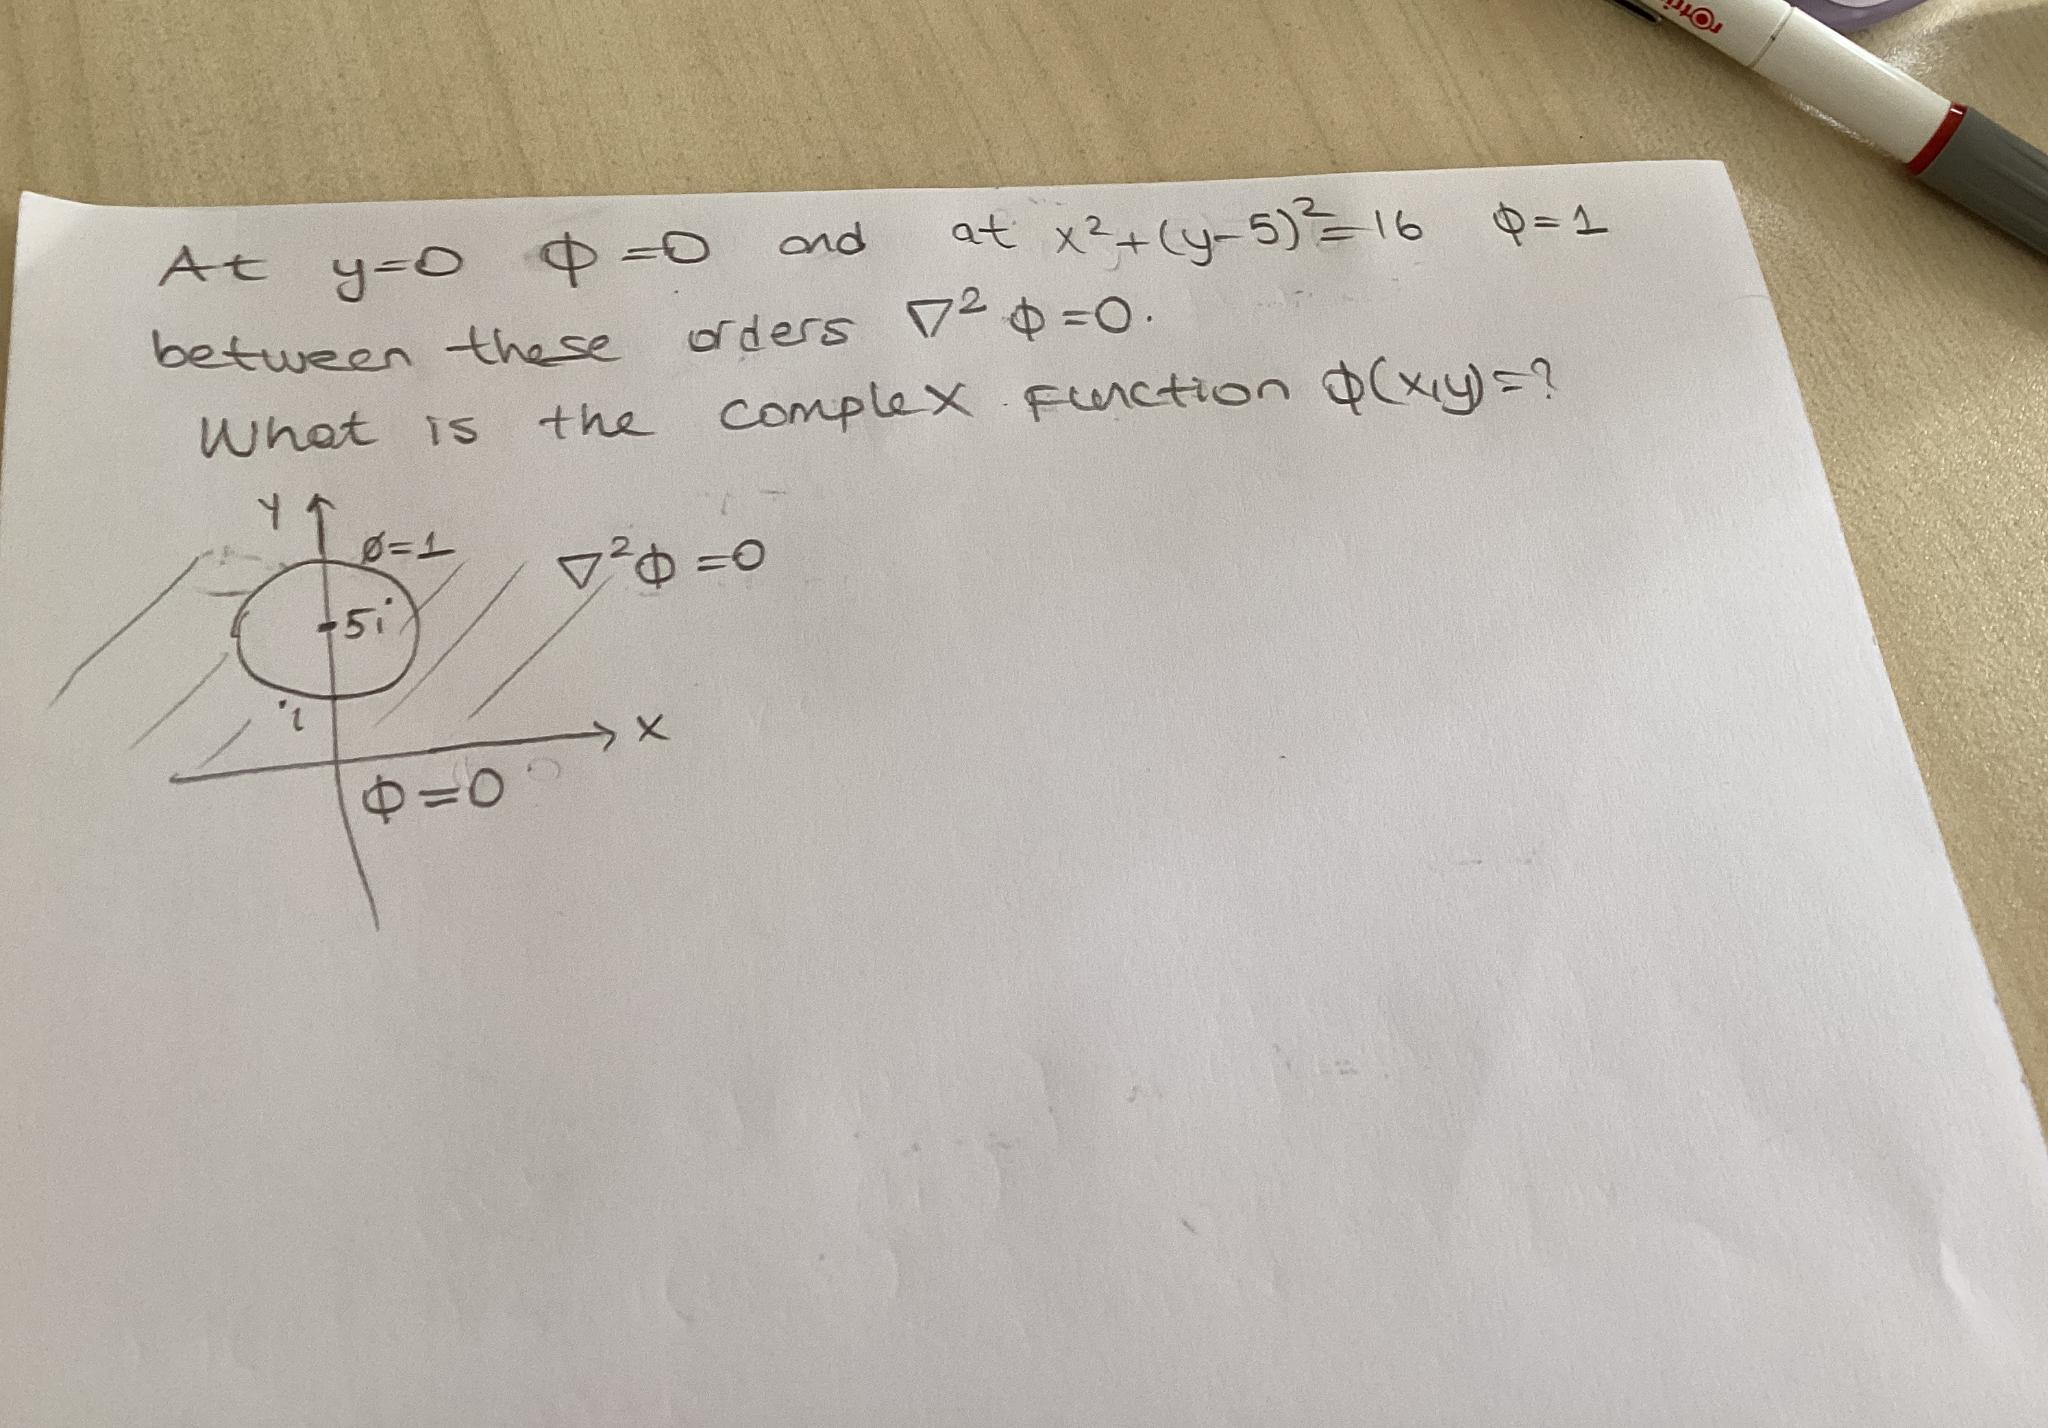 At y=0 Φ=0 and at x²+(y-5)²=16 Φ=1
between these orders ∇²Φ=0.
What is the complex function Φ(x,y)=?
y
Ø=1
∇²Φ=0
5i
i
x
Φ=0